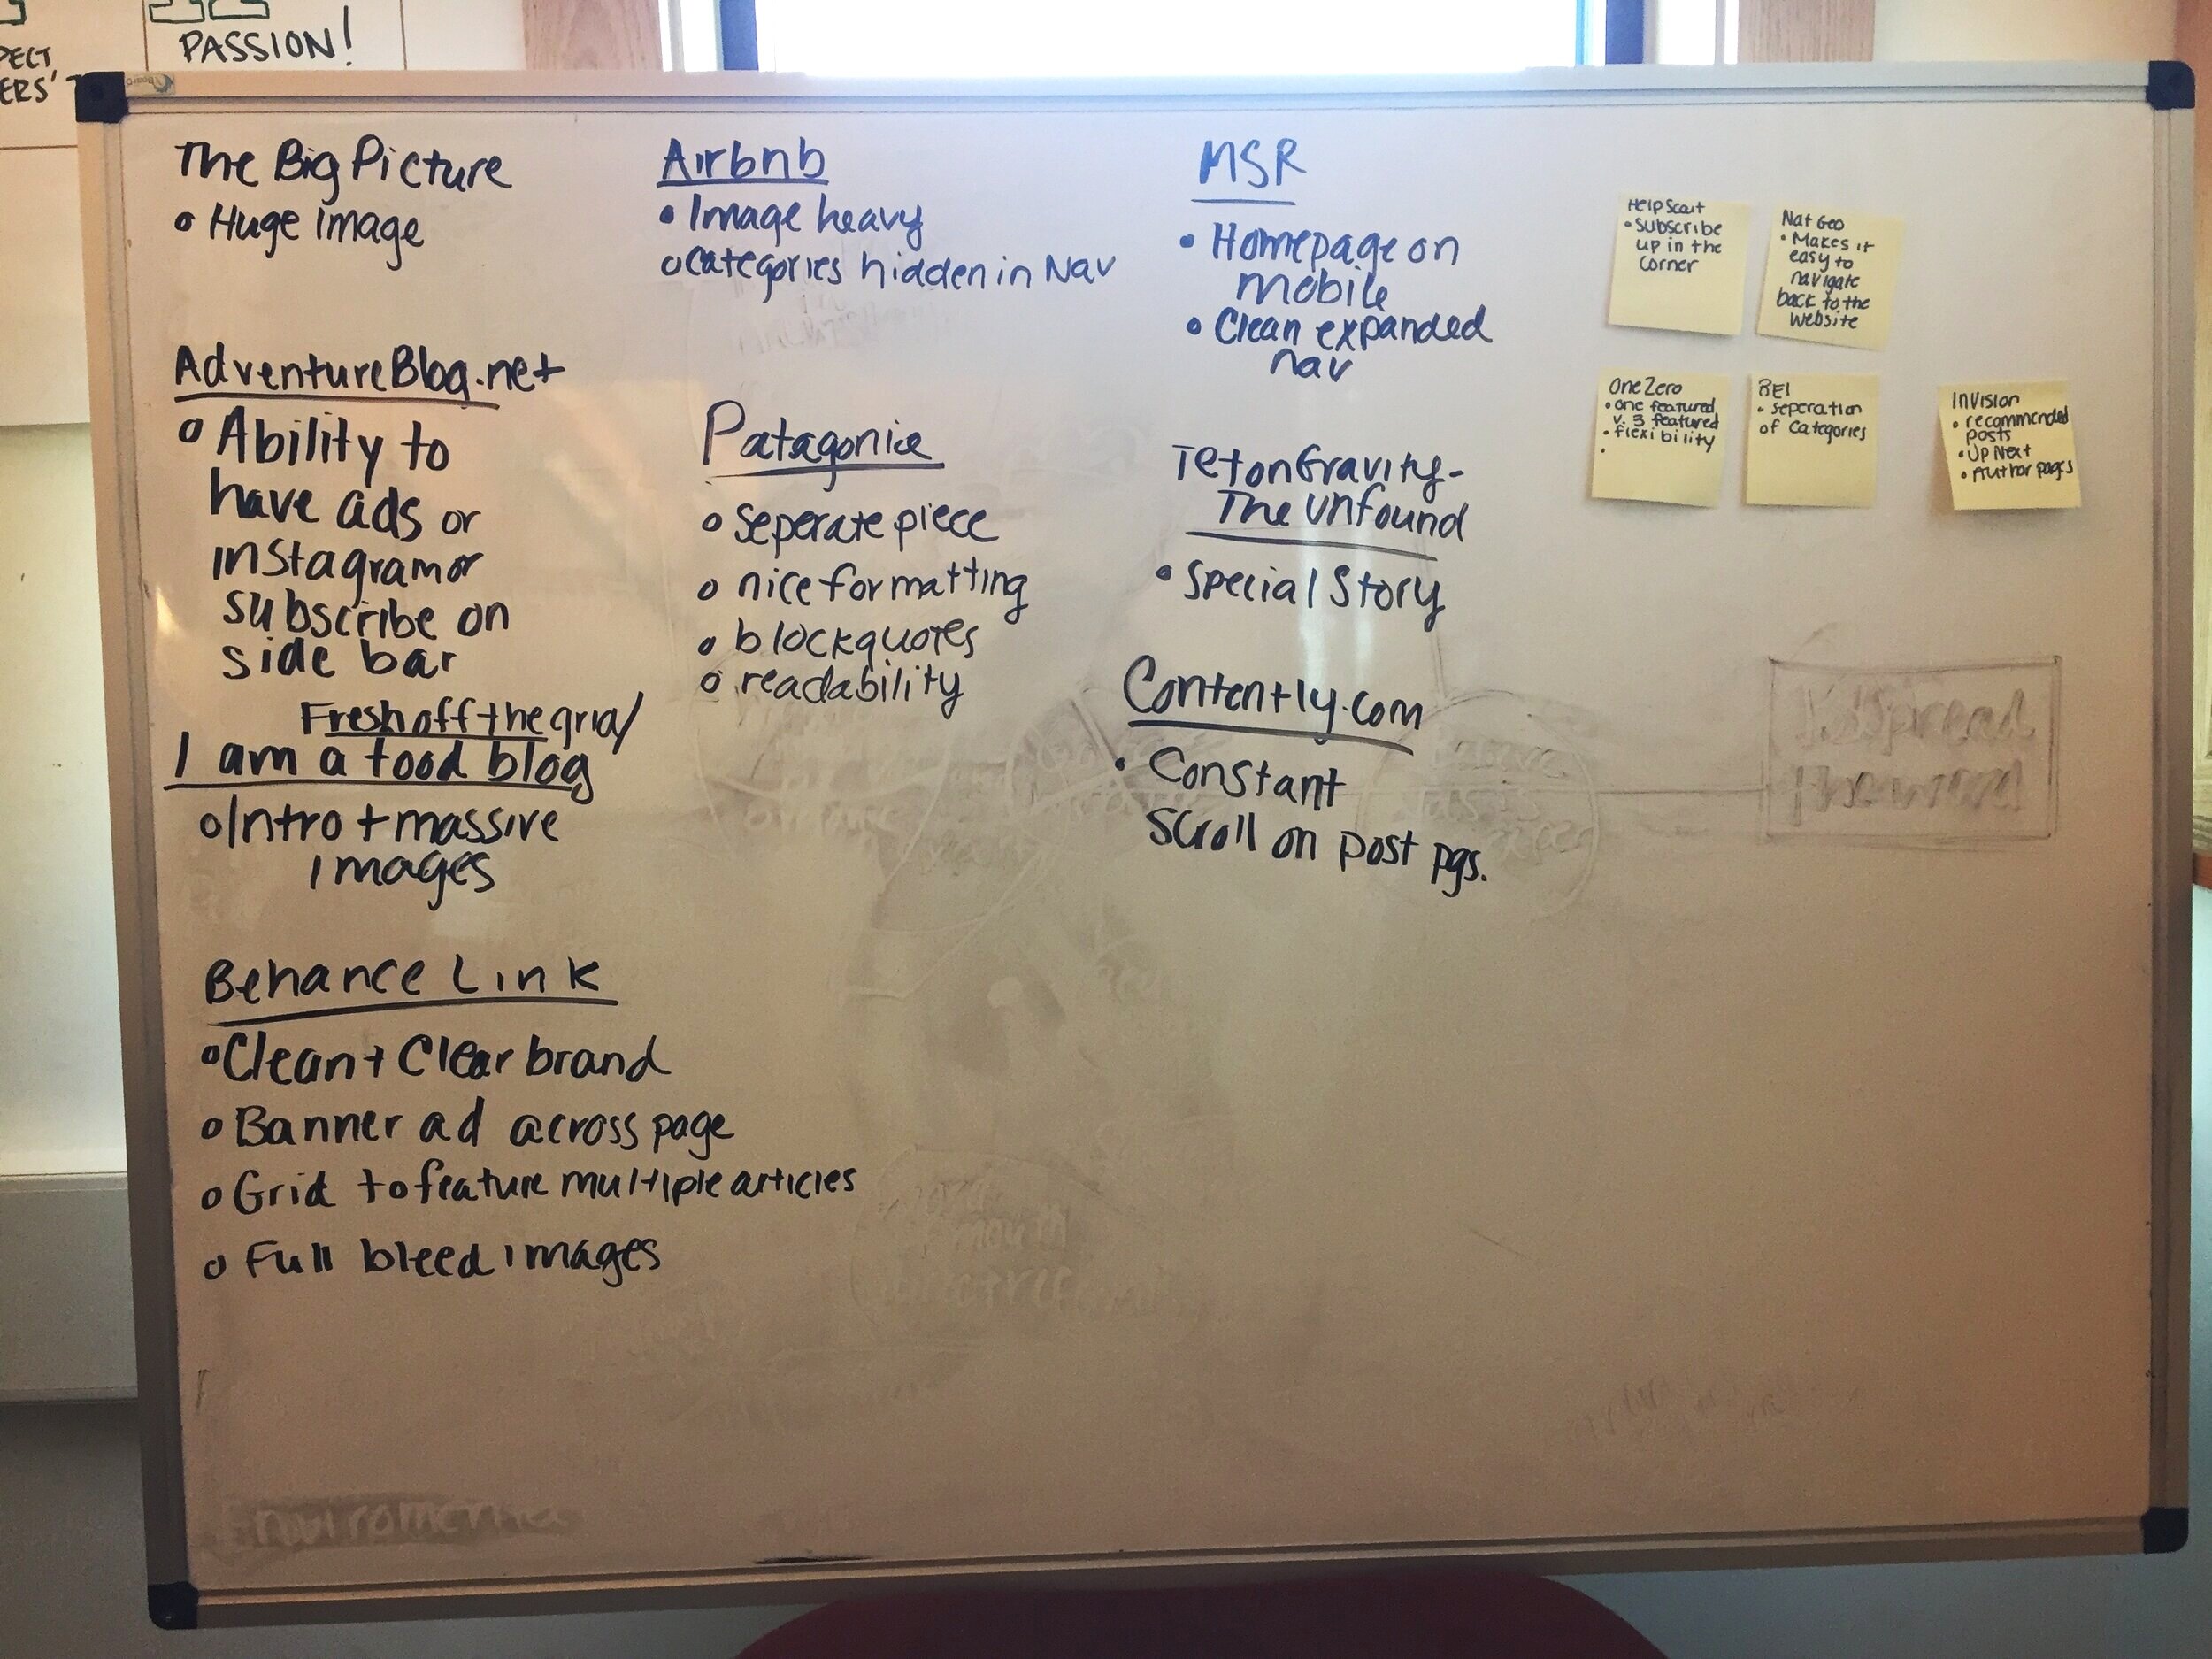 PASSION!
PECT
ERS'
The Big Picture
Huge Image
AdventureBlog.net
Ability to
have ads or
instagram or
subscribe on
side bar
Fresh off the grid/
I am a food blog
Intro + massive
images
Behance Link
Clean + Clear brand
Banner ad across page
Grid to feature multiple articles
Full bleed images
Airbnb
Image heavy
Categories hidden in Nav
Patagonia
Seperate piece
nice formatting
blockquotes
readability
MSR
Homepage on
mobile
Clean expanded
nav
TetonGravity-
The Unfound
Special Story
Contently.com
Constant
Scroll on post pgs.
Help Scout
Subscribe
up in the
corner
Nat Geo
Makes it
easy to
navigate
back to the
website
One Zero
one featured
v. 3 featured
flexibility
REI
seperation
of categories
InVision
recommended
posts
Up Next
Author pages
spread
mouth